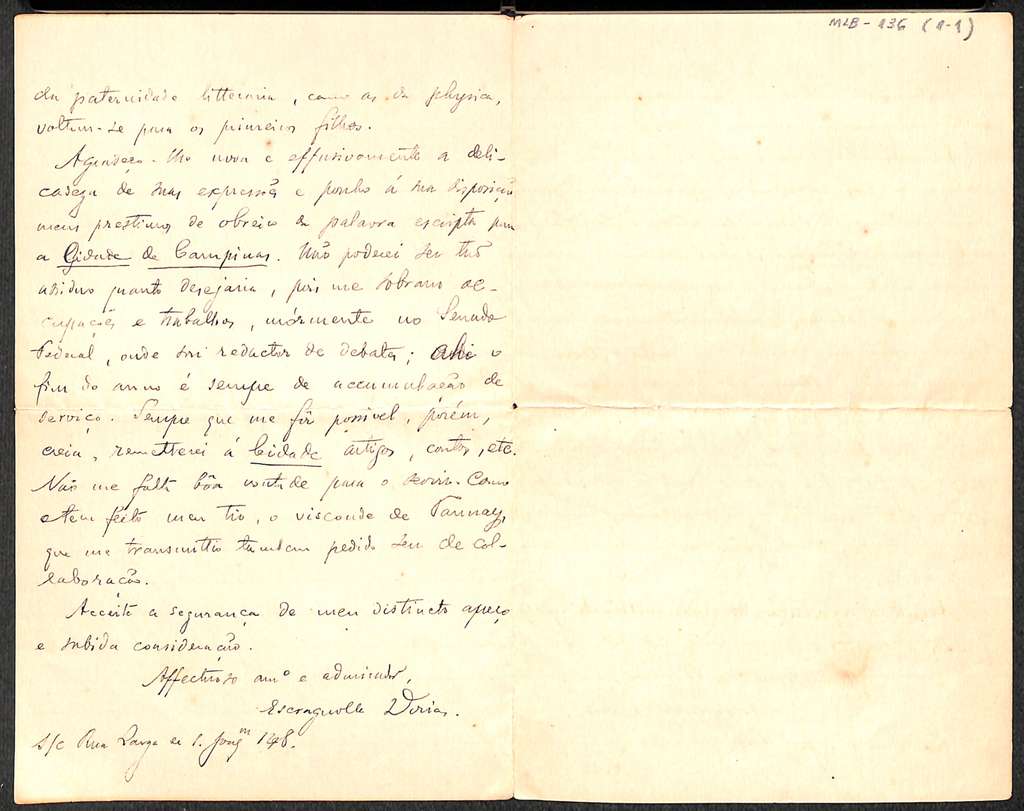 MLB - 136 (1-1)
da paternidade litteraria, como as da physica,
voltam-se para os primeiros filhos.
Agradeço-lhe nova e effusivamente a deli-
cadeza de suas expressões e ponho á sua disposição
meus prestimos de obreiro da palavra escripta para
a Cidade de Campinas. Não poderei ser tão
assiduo quanto desejaria, pois me sobram oc-
cupações e trabalhos, mórmente no Senado
Federal, onde sou redactor de debates; ahi o
fim do anno é sempre de accumulação de
serviço. Sempre que me fôr possivel, porém,
creia, remetterei á Cidade artigos, contos, etc.
Não me falta bôa vontade para o servir. Como
tem feito meu tio, o visconde de Taunay,
que me transmittio tambem pedido seu de col-
laboração.
Acceite a segurança de meu distincto apreço
e subida consideração.
Affectuoso amº e admirador,
Escragnolle Doria.
S/c Rua Larga de S. Joaqm 148.